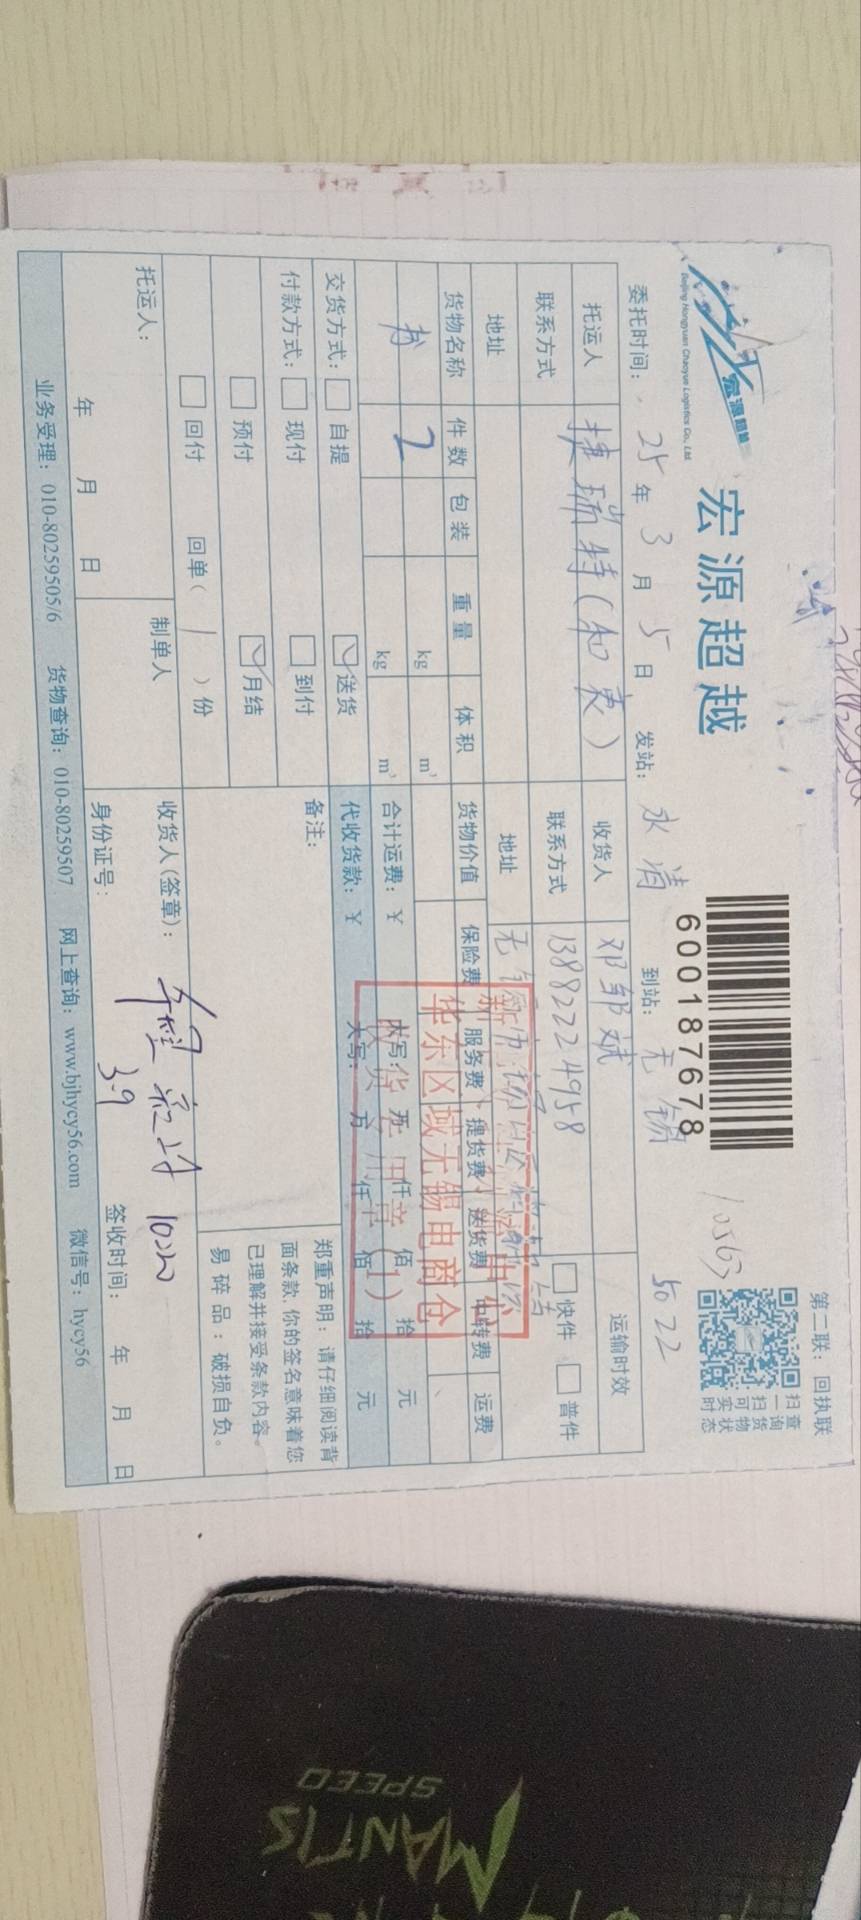 第二联：回执联
宏源超越
宏源超越
Beijing Hongyuan Chaoyue Logistics Co., Ltd.
600187678
扫一扫可实时
查询货物状态
10563
5022
委托时间： 25 年 3 月 5 日 发站： 永清 到站： 无锡
托运人 捷瑞特(和表) 收货人 邓邹斌 运输时效
联系方式 联系方式 13882224958 快件 普件
地址 地址 无锡
货物名称 件数 包装 重量 体积 货物价值 保险费 服务费 提货费 送货费 中转费 运费
书 2 kg m³
kg m³ 合计运费：¥ 大写： 万 仟 佰 拾 元
交货方式： 自提 送货 代收货款：¥ 大写： 万 仟 佰 拾 元
付款方式： 现付 到付 备注：
预付 月结
回付 回单（ 1 ）份
郑重声明：请仔细阅读背
面条款，你的签名意味着您
已理解并接受条款内容。
易碎品：破损自负。
华东区域无锡电商仓
收货专用章(1)
托运人： 制单人 收货人(签章)：
年 月 日 身份证号： 3.9 签收时间： 年 月 日
业务受理：010-80259505/6 货物查询：010-80259507 网上查询：www.bjhycy56.com 微信号：hycy56
MANTIS
SPEED